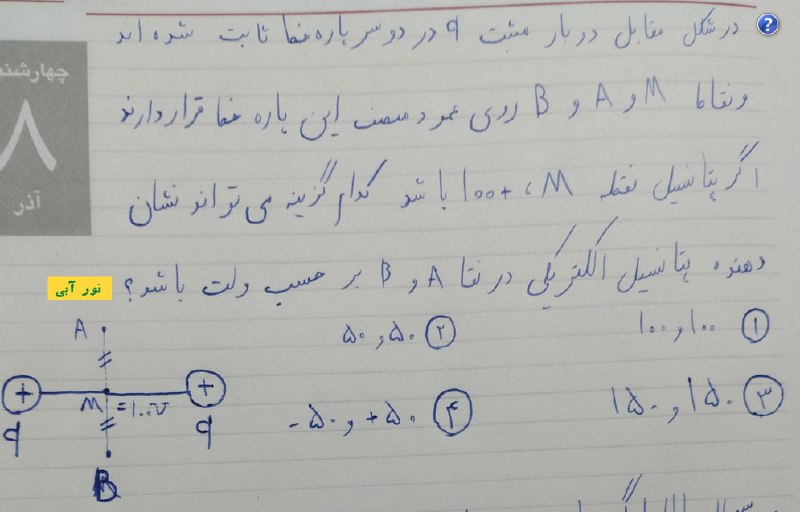 در شکل مقابل دو بار مثبت q در دو سر پاره خط ثابت شده اند
ونقاط M و A و B روی عمود منصف این پاره خط قرار دارند
اگر پتانسیل نقطه M، +۱۰۰ باشد کدام گزینه می تواند نشان
دهنده پتانسیل الکتریکی در نقاط A و B بر حسب ولت باشد؟
نور آبی
① ۱۰۰ و ۱۰۰
② ۵۰ و ۵۰
③ ۱۵۰ و ۱۵۰
④ +۵۰ و -۵۰
A
+
+
M =۱۰۰v
q
q
B
چهارشنبه
۸
آذر